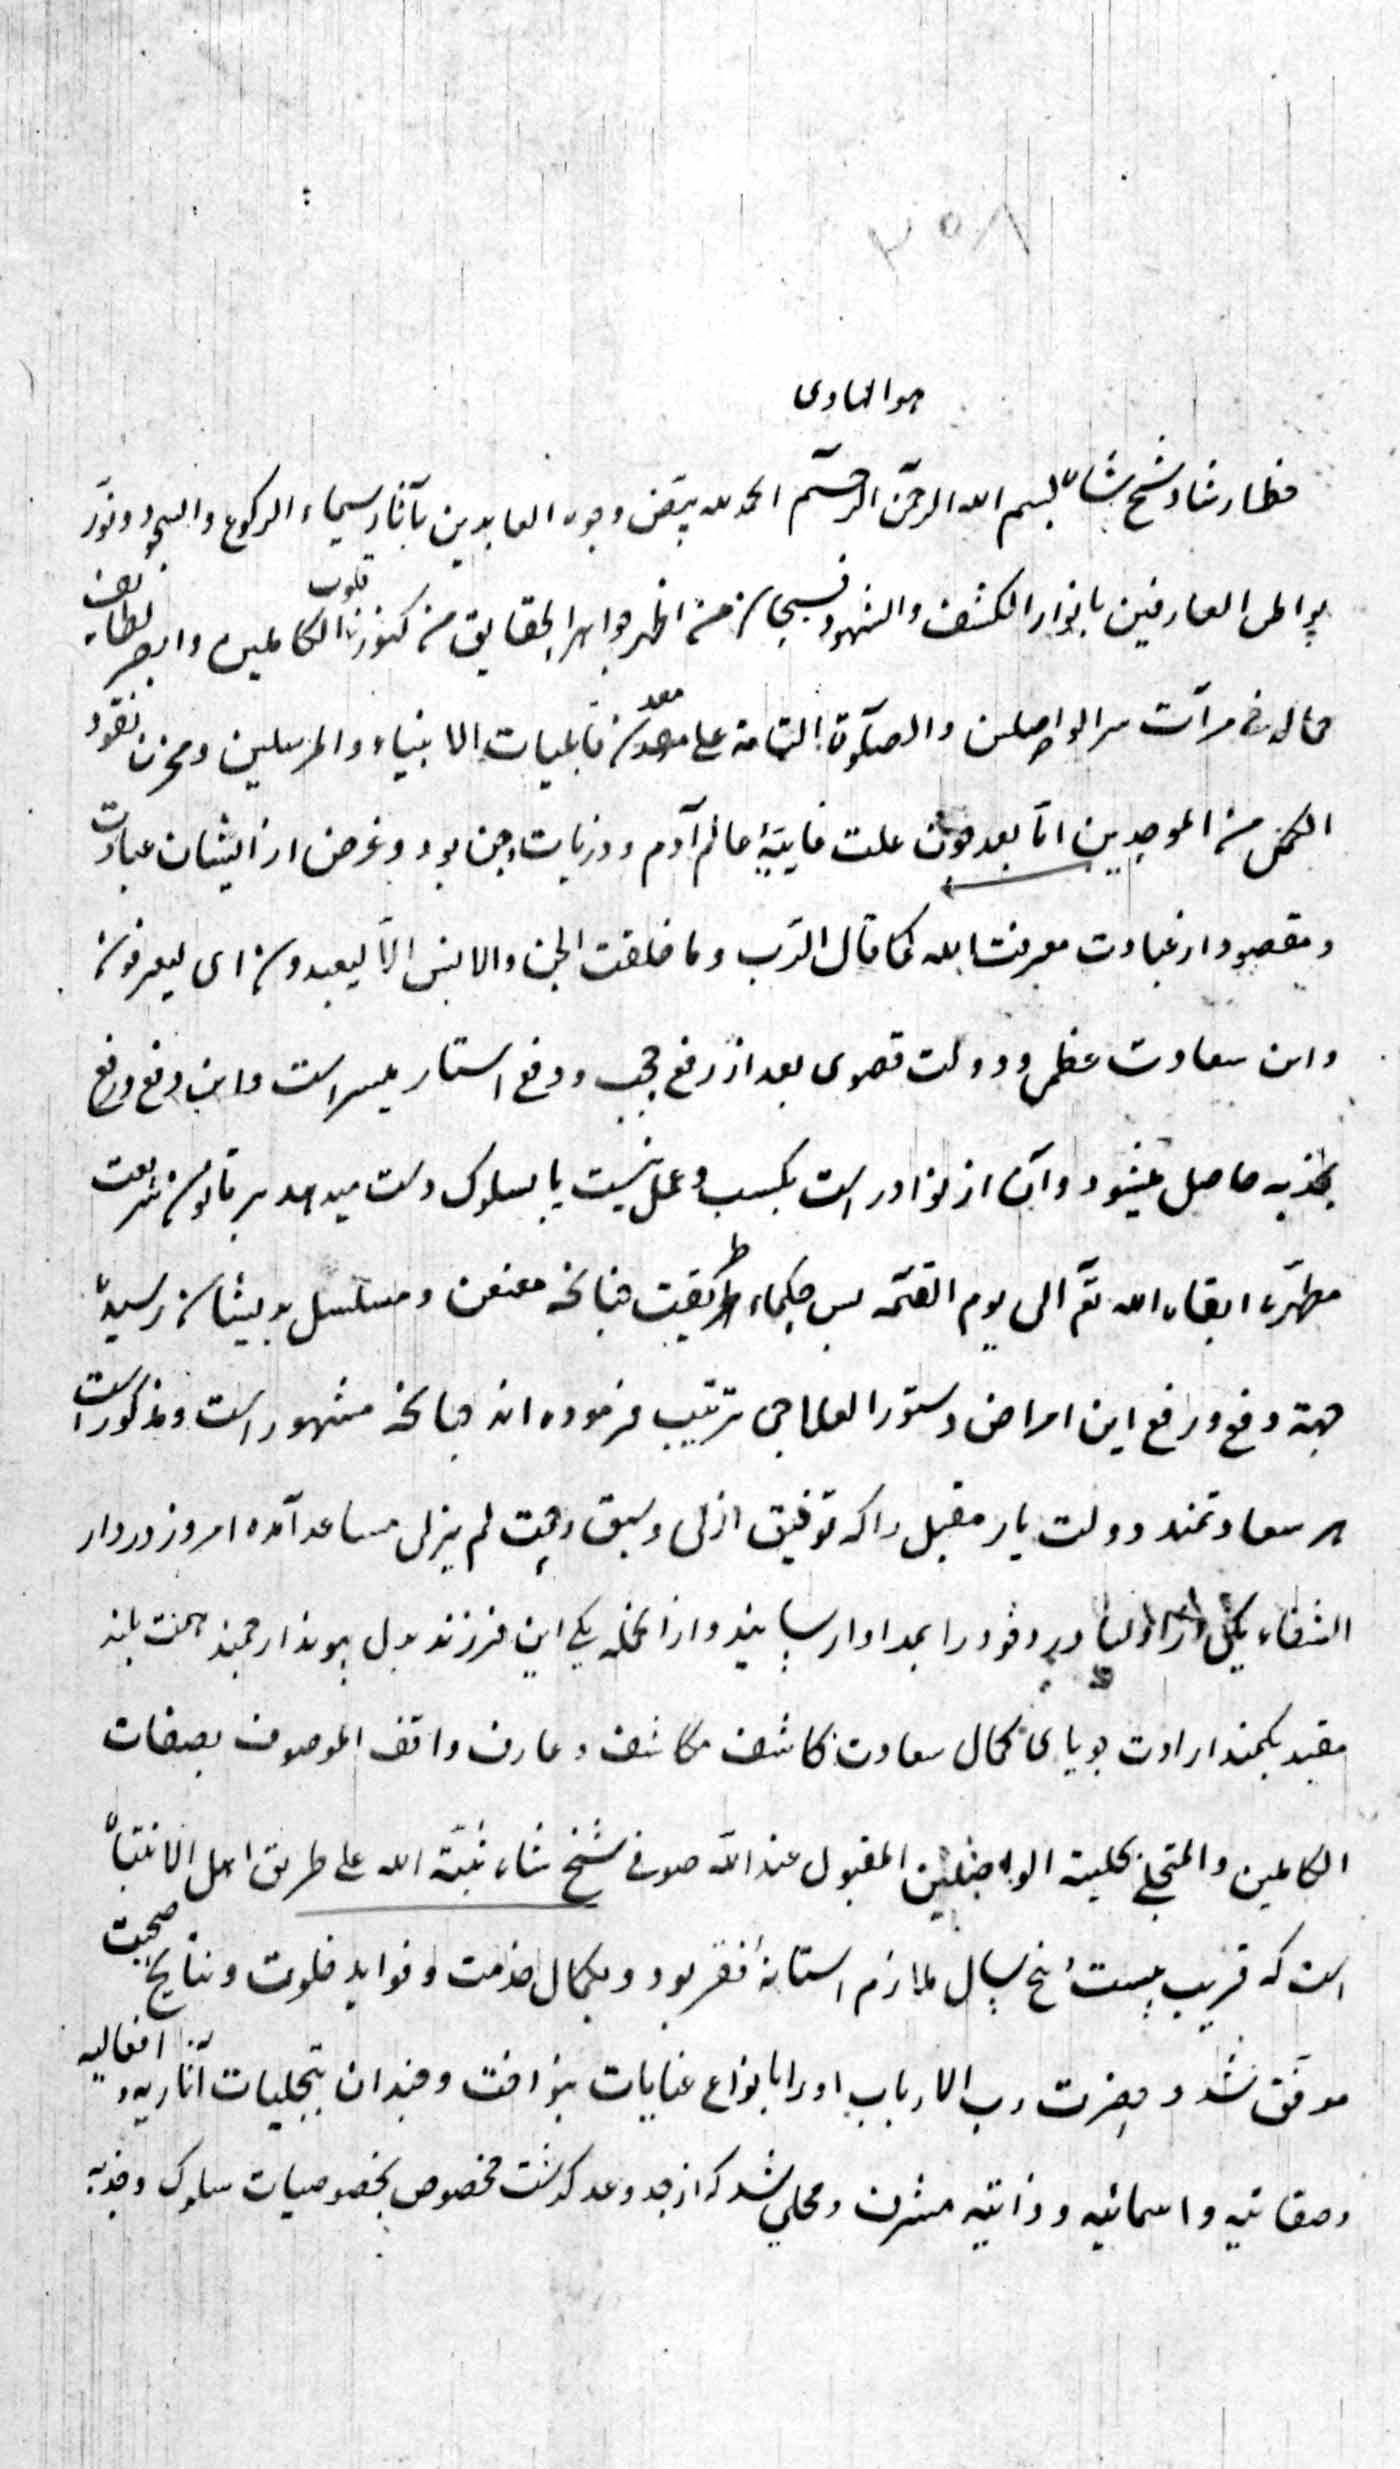 ۲۵۸
هو الهادی
خط ارشاد شیخ شاه بسم الله الرحمن الرحیم الحمد لله بیّض وجوه العابدین بآثار سیماء الرکوع والسجود ونوّر
بواطن العارفین بانوار الکشف والشهود فسبحان من اظهر جواهر الحقایق من کنوز قلوب الکاملین وابصر لطایف
جماله فی مرآت سر الواصلین والصلوة التامة علی معدن قابلیات الانبیاء والمرسلین ومخزن نقود
الکمّل من الموحدین امّا بعد چون علت غاییهٔ عالم آدم و ذریات و جن بود و غرض از ایشان عبادت
و مقصود از عبادت معرفت الله کما قال الرّب وما خلقت الجن والانس الّا لیعبدون ای لیعرفون
و این سعادت عظمی و دولت قصوی بعد از رفع حجب و دفع استار میسر است و این دفع و رفع
بجذبه حاصل میشود و آن از نوادر است بکسب و عمل نیست یا بسلوک دست میدهد بر قانون شریعت
مطهّره ابقاه الله تعّ الی یوم القیمه پس حکماء طریقت چنانچه معنعن و مسلسل بدیشان رسیده
جهة دفع و رفع این امراض دستور العلاجی ترتیب فرموده اند چنانچه مشهور است و مذکور است
هر سعادتمند دولت یار مقبل را که توفیق ازلی و سبق رحمت لم یزلی مساعد آمده امروز در دار
الشفاء یکی از اولیا درد خود را بمداوا رسانید و از آنجمله یکی این فرزند دل پیوند ارجمند همت بلند
مقید بکمند ارادت جویای کمال سعادت کاشف مکاشف و عارف واقف الموصوف بصفات
الکاملین والمتحلی بحلیة الواصلین المقبول عند الله صوفی شیخ شاه ثبّته الله علی طریق اهل الانتباه
است که قریب بیست پنج سال ملازم آستانهٔ فقر بود و بکمال خدمت و فواید خلوت و نتایج صحبت
موفق شد و حضرت رب الارباب او را بانواع عنایات بنواخت و چندان بتجلیات آثاریه و افعالیه
و صفاتیه و اسمائیه و ذاتیه مشرف و محلی شد که از حد و عد گذشت مخصوص بخصوصیات سلوک و جذبه